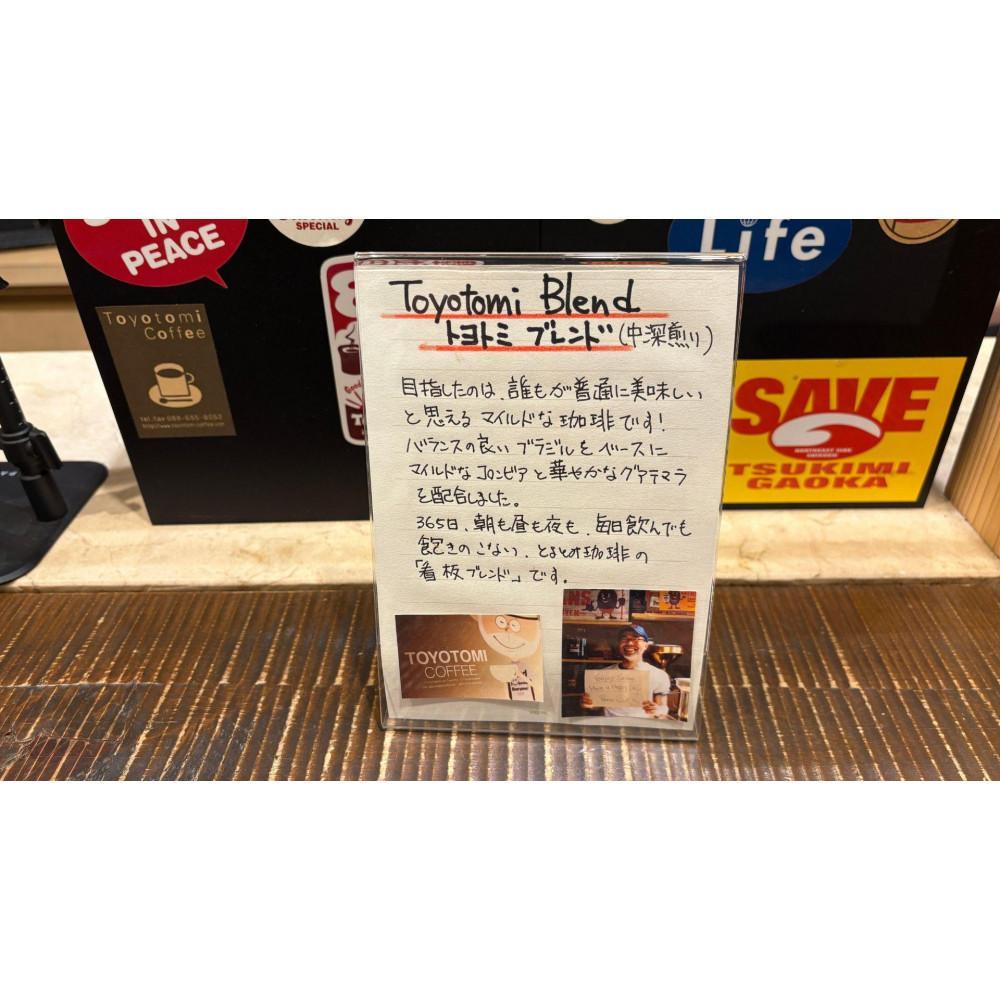 IN
PEACE
SPECIAL
Life
Toyotomi
Coffee
SAVE
TSUKIMI
GAOKA
Toyotomi Blend
トヨトミ ブレンド(中深煎り)
目指したのは、誰もが普通に美味しい
と思えるマイルドな珈琲です!
バランスの良いブラジルをベースに
マイルドなコロンビアと華やかなグァテマラ
を配合しました。
365日、朝も昼も夜も、毎日飲んでも
飽きのこない、とよとみ珈琲の
「看板ブレンド」です。
TOYOTOMI
COFFEE